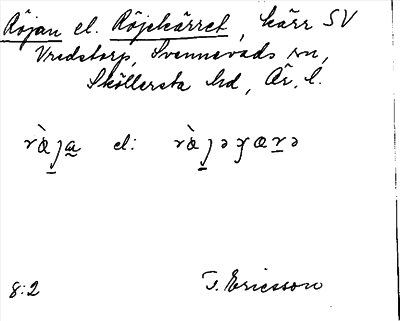 Röjan el. Röjekärret, kärr SV
Vredstorp, Svennevads sn,
Sköllersta hd, Är. l.
el:
8:2 T. Ericsson